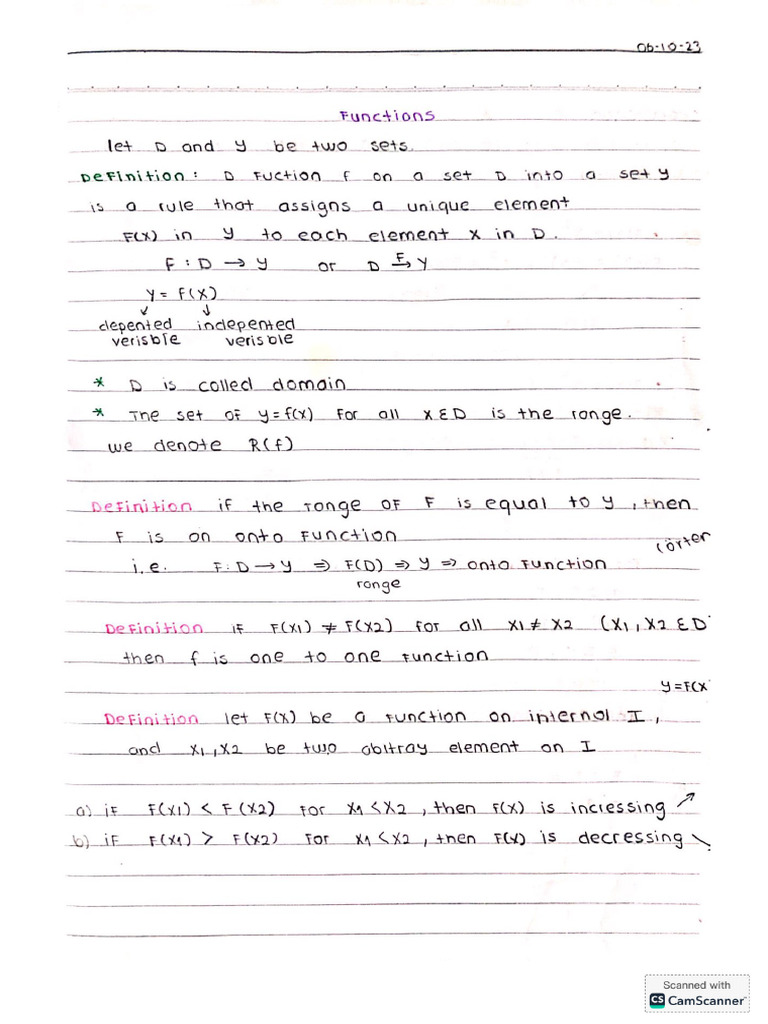 06-10-23
Functions
let D and Y be two sets.
Definition: D Fuction f on a set D into a set y
is a rule that assigns a unique element
F(x) in y to each element x in D.
F : D → y or D F→ Y
y = f(x)
depented indepented
verisble verisble
* D is called domain
* The set of y=f(x) for all x ED is the range.
we denote R(f)
Definition if the range of F is equal to y, then
F is on onto function
(örten
i.e. F: D → y ⇒ F(D) ⇒ y ⇒ onto function
range
Definition if F(x1) ≠ F(x2) for all x1 ≠ x2 (x1, x2 ED
then f is one to one function
y = F(x
Definition let F(x) be a function on internal I,
and x1, x2 be two abitray element on I
a) if F(x1) < F(x2) for x1 < x2, then F(x) is incressing ↗
b) if F(x1) > F(x2) for x1 < x2, then F(x) is decressing ↘
Scanned with
CS CamScanner